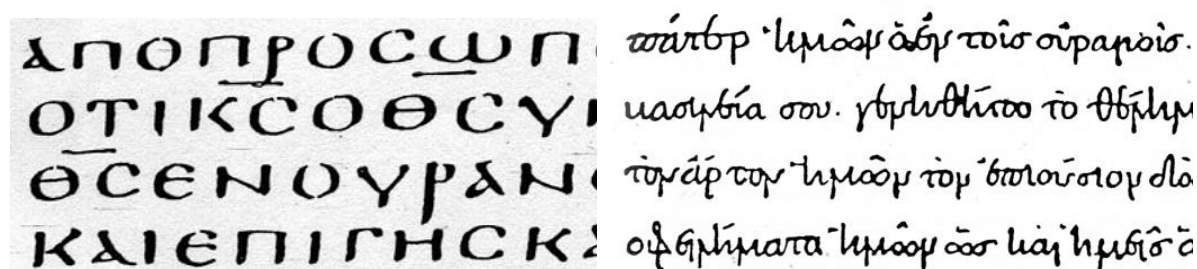 ΑΠΟΠΡΟCΩΠ
ΟΤΙΚ̅C̅ΟΘ̅C̅Υ
Θ̅C̅ΕΝΟΥΡΑΝ
ΚΑΙΕΠΙΓΗCΚΑ
πάτερ ἡμῶν ὁ ἐν τοῖς οὐρανοῖς.
βασιλεία σου. γενηθήτω τὸ θέλημ
τὸν ἄρτον ἡμῶν τὸν ἐπιούσιον
ὀφειλήματα ἡμῶν ὡς καὶ ἡμεῖς